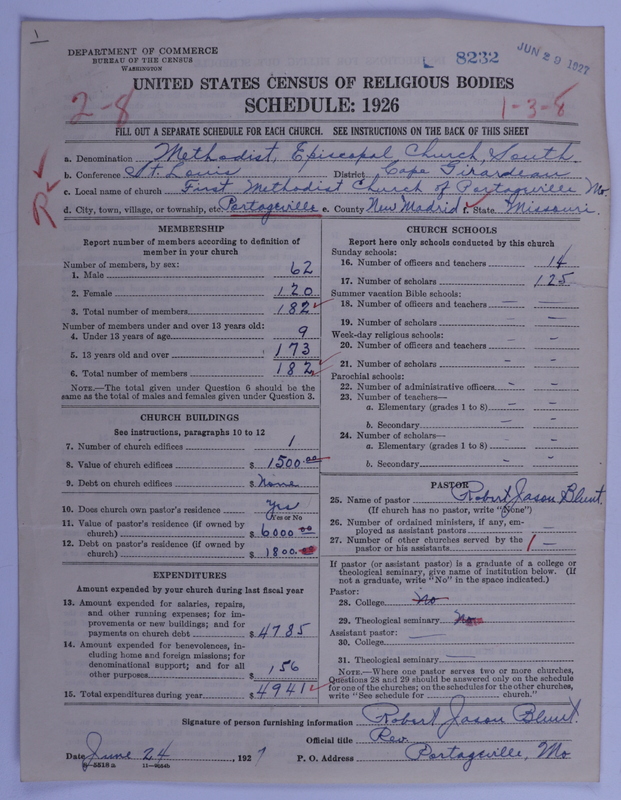 1
DEPARTMENT OF COMMERCE
BUREAU OF THE CENSUS
WASHINGTON
8232
JUN 29 1927
UNITED STATES CENSUS OF RELIGIOUS BODIES
SCHEDULE: 1926
2-8
1-3-8
FILL OUT A SEPARATE SCHEDULE FOR EACH CHURCH. SEE INSTRUCTIONS ON THE BACK OF THIS SHEET
a. Denomination Methodist, Episcopal Church, South.
b. Conference St. Louis District Cape Girardeau
c. Local name of church First Methodist Church of Portageville Mo.
R
d. City, town, village, or township, etc. Portageville e. County New Madrid f. State Missouri.
MEMBERSHIP
Report number of members according to definition of
member in your church
Number of members, by sex:
1. Male 62
2. Female 120
3. Total number of members 182
Number of members under and over 13 years old:
4. Under 13 years of age 9
5. 13 years old and over 173
6. Total number of members 182
NOTE.—The total given under Question 6 should be the
same as the total of males and females given under Question 3.
CHURCH BUILDINGS
See instructions, paragraphs 10 to 12
7. Number of church edifices 1
8. Value of church edifices $ 1500.00
9. Debt on church edifices $ None
10. Does church own pastor's residence yes
Yes or No
11. Value of pastor's residence (if owned by
church) $ 6000 00
12. Debt on pastor's residence (if owned by
church) $ 1800.
EXPENDITURES
Amount expended by your church during last fiscal year
13. Amount expended for salaries, repairs,
and other running expenses; for im-
provements or new buildings; and for
payments on church debt $ 4785
14. Amount expended for benevolences, in-
cluding home and foreign missions; for
denominational support; and for all
other purposes $ 156
15. Total expenditures during year $ 4941
CHURCH SCHOOLS
Report here only schools conducted by this church
Sunday schools:
16. Number of officers and teachers 14
17. Number of scholars 125
Summer vacation Bible schools:
18. Number of officers and teachers — —
19. Number of scholars — —
Week-day religious schools:
20. Number of officers and teachers — —
21. Number of scholars — —
Parochial schools:
22. Number of administrative officers — —
23. Number of teachers—
a. Elementary (grades 1 to 8) — —
b. Secondary — —
24. Number of scholars—
a. Elementary (grades 1 to 8) — —
b. Secondary — —
PASTOR
25. Name of pastor Robert Jason Blunt.
(If church has no pastor, write "None")
26. Number of ordained ministers, if any, em-
ployed as assistant pastors — —
27. Number of other churches served by the
pastor or his assistants 1 —
If pastor (or assistant pastor) is a graduate of a college or
theological seminary, give name of institution below. (If
not a graduate, write "No" in the space indicated.)
Pastor:
28. College No
29. Theological seminary No
Assistant pastor:
30. College —
31. Theological seminary —
NOTE.—Where one pastor serves two or more churches,
Questions 28 and 29 should be answered only on the schedule
for one of the churches; on the schedules for the other churches,
write "See schedule for church."
Signature of person furnishing information Robert Jason Blunt.
Official title Rev.
Date June 24, 1927 P. O. Address Portageville, Mo